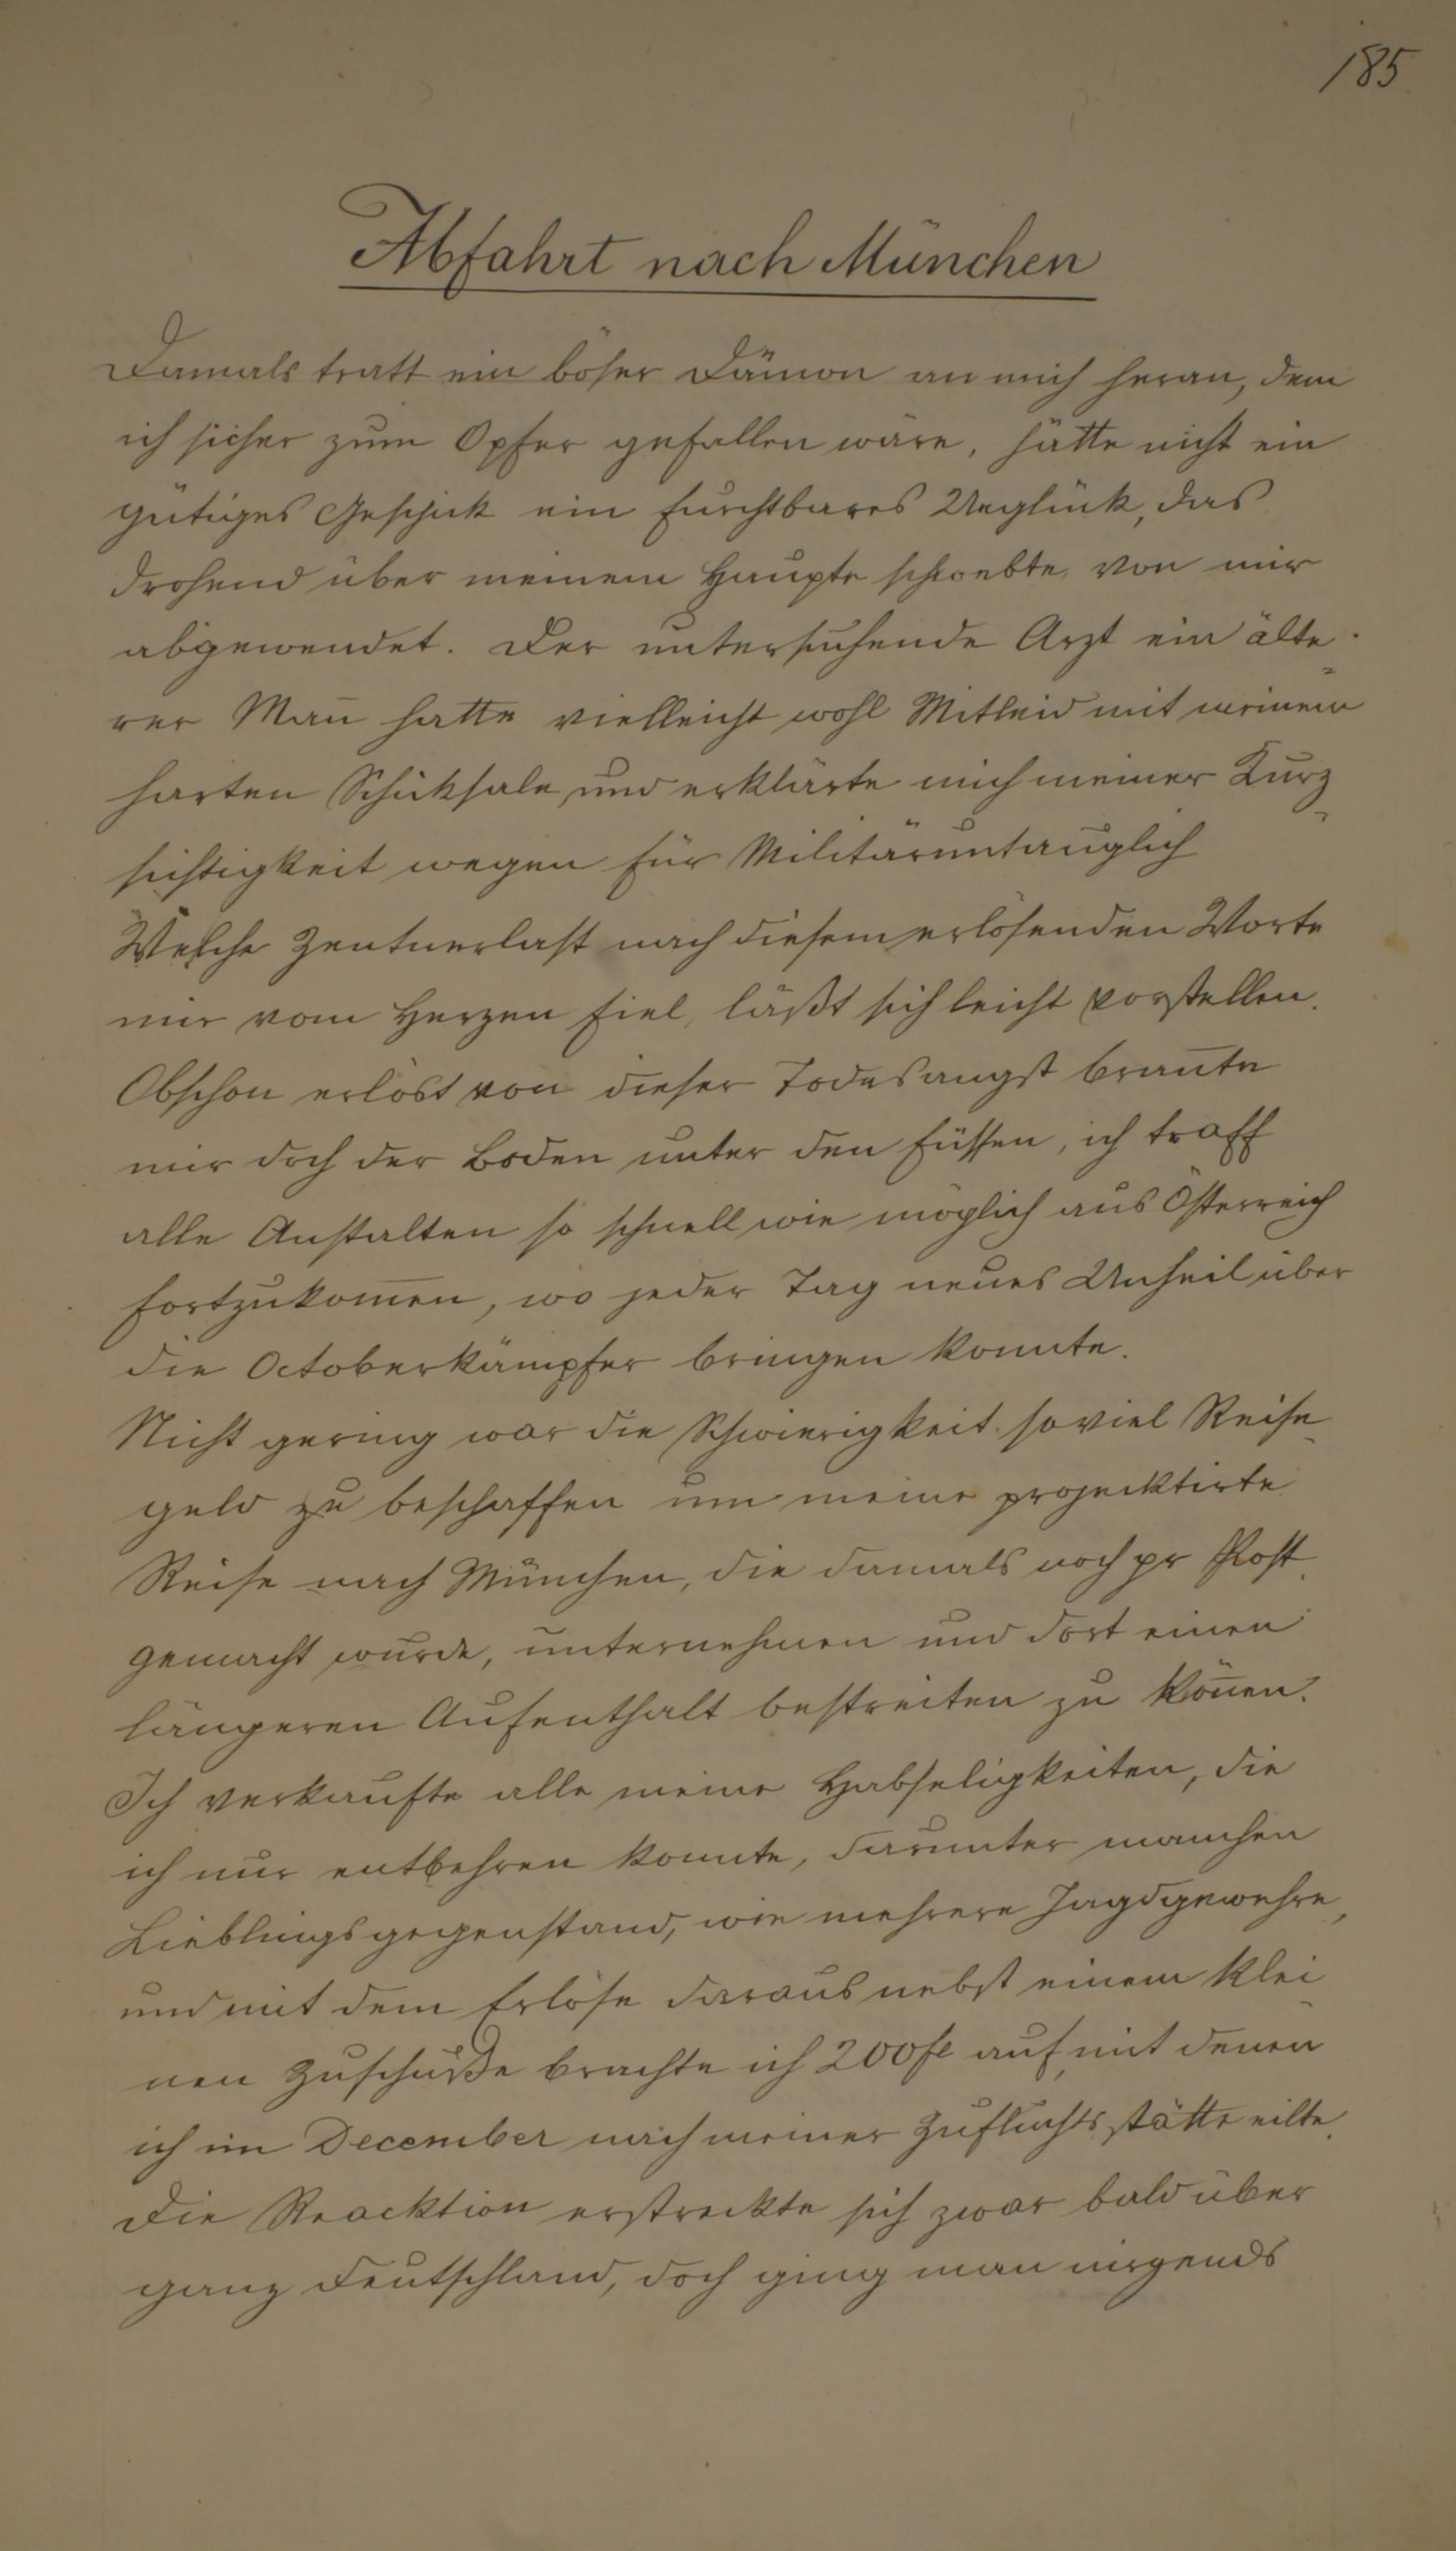 185
Abfahrt nach München
Damals tratt ein böser Dämon an mich heran, dem
ich sicher zum Opfer gefallen wäre, hätte nicht ein
gütiges Geschick ein furchtbares Unglück, das
drohend über meinem Haupte schwebte, von mir
abgewendet. Der untersuchende Arzt ein älte-
rer Man̅ hatte vielleicht wohl Mitleid mit meinem
harten Schicksale und erklärte mich meiner Kurz-
sichtigkeit wegen für Militäruntauglich
Welche Zentnerlast nach diesem erlösenden Worte
mir vom Herzen fiel, läßt sich leicht vorstellen.
Obschon erlöst von dieser Todesangst bran̅te
mir doch der Boden unter den Füssen, ich traff
alle Anstalten so schnell wie möglich aus Österreich
fortzukom̅en, wo jeder Tag neues Unheil über
die Octoberkämpfer bringen konnte.
Nicht gering war die Schwierigkeit soviel Reise-
geld zu beschaffen um meine projecktirte
Reise nach München, die damals noch pr Post
gemacht wurde, unternehmen und dort einen
längeren Aufenthalt bestreiten zu kön̅en.
Ich verkaufte alle meine Habseligkeiten, die
ich nur entbehren konnte, darunter manchen
Lieblingsgegenstand, wie mehrere Jagdgewehre,
und mit dem Erlöse daraus nebst einem klei-
nen Zuschuße brachte ich 200 fl auf, mit denen
ich im December nach meiner Zufluchtsstätte eilte.
Die Reacktion erstreckte sich zwar bald über
ganz Deutschland, doch ging man nirgends